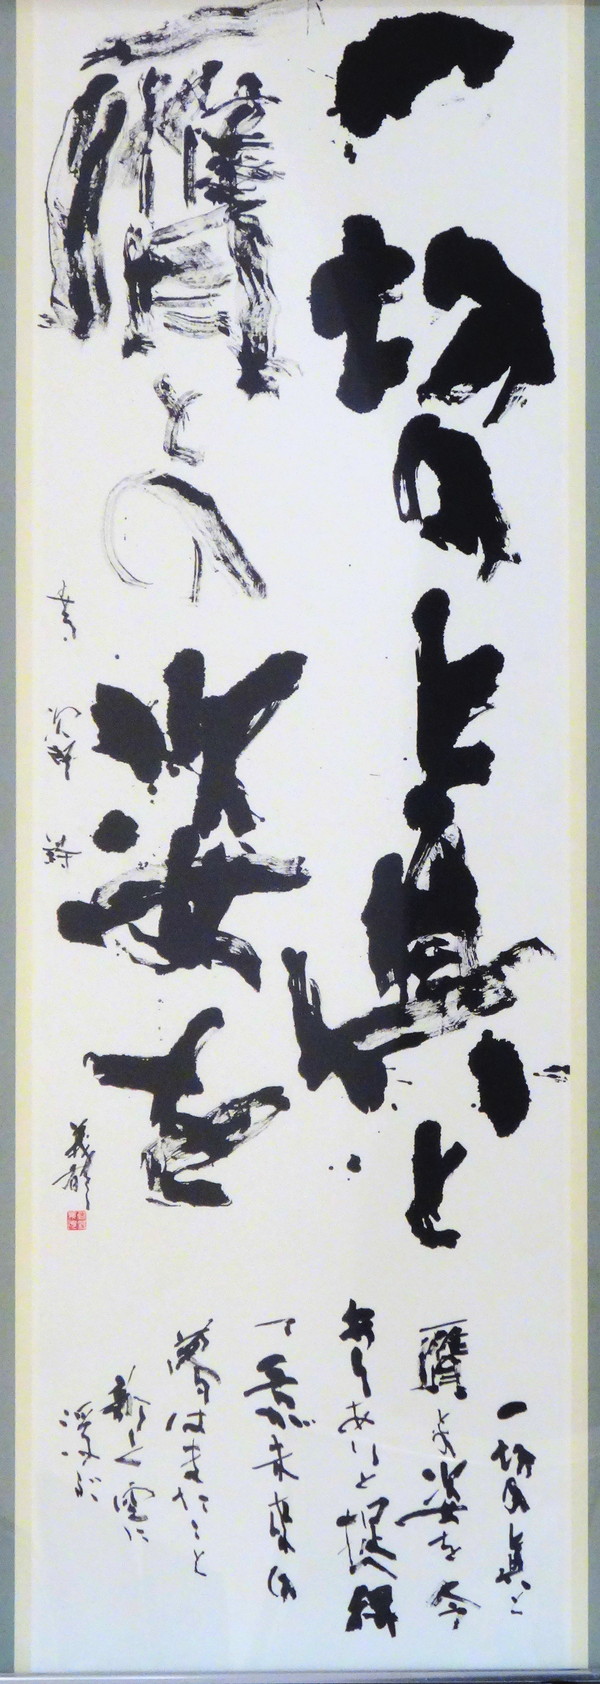 一切の眞と
贋との姿を
一切の眞と
贋との姿を今
ありありと捉へ得
て吾が未来の
夢はまたこと
新しく雲に
浮かぶ